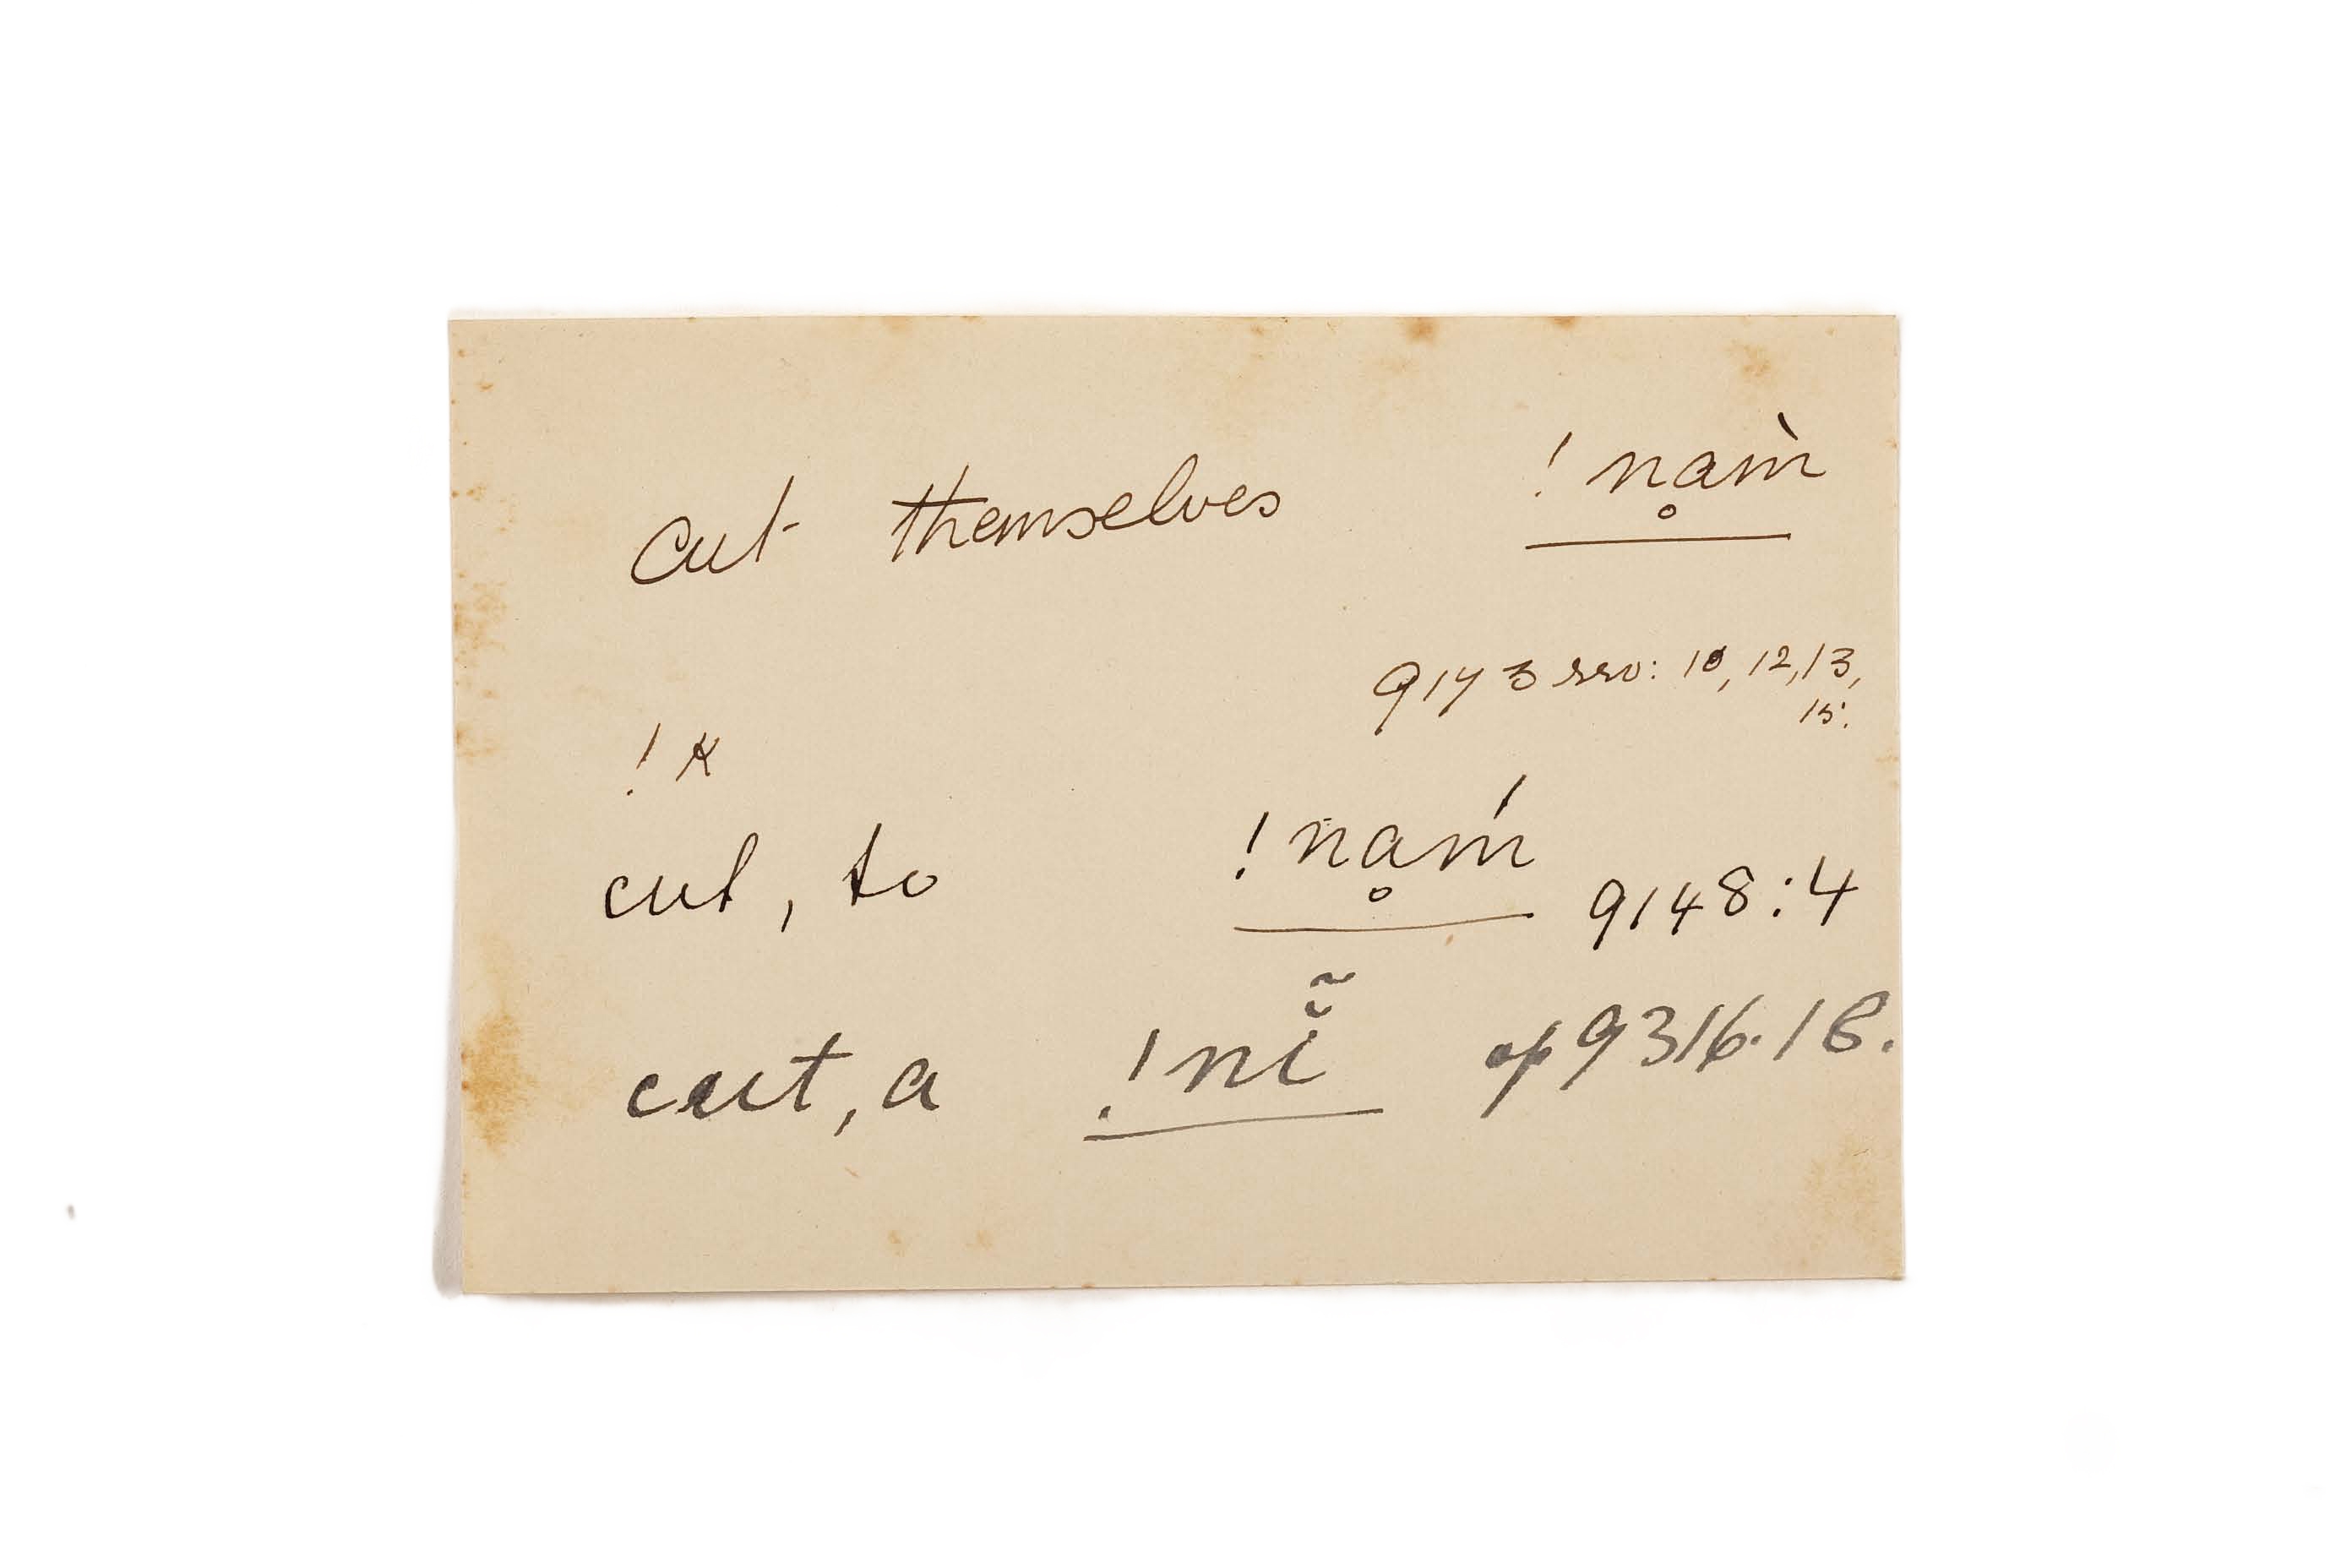 cut themselves !nḁm̀
9173 rev: 10, 12, 13,
15.
!k
cut, to !nḁḿ 9148:4
cut, a !nĭ̃ op 9316. 18.